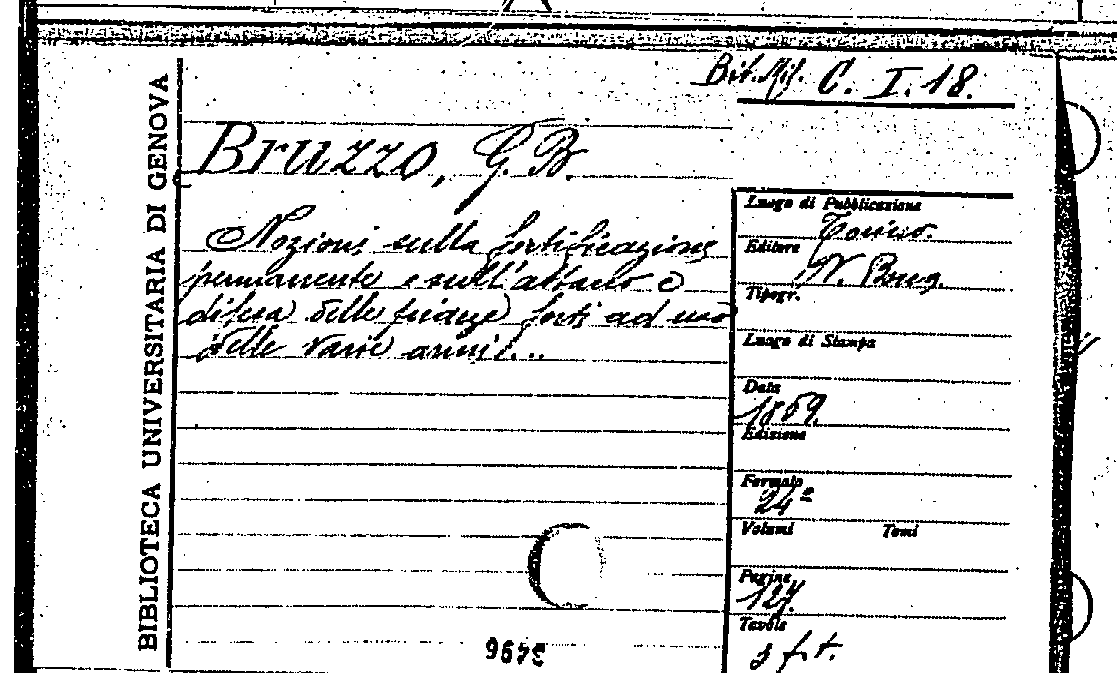 Bit. Mil. C. I. 18.
BIBLIOTECA UNIVERSITARIA DI GENOVA
Bruzzo, G. B.
Nozioni sulla fortificazione
permanente e sull'attacco e
difesa delle piazze forti ad uso
delle varie armi...
Luogo di Pubblicazione
Torino.
Editore
Tipogr.
Luogo di Stampa
Data
1859.
Edizione
Formato
24º
Volumi Tomi
Pagine
127.
Tavole
f. t.